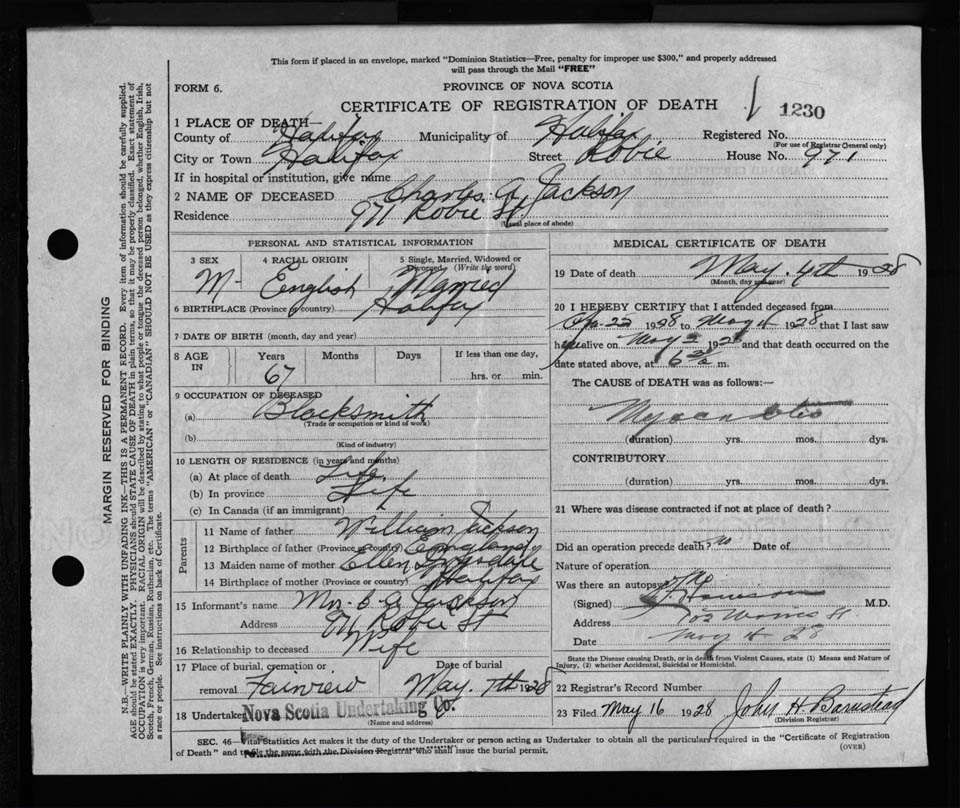 This form if placed in an envelope, marked "Dominion Statistics—Free, penalty for improper use $300," and properly addressed
will pass through the Mail "FREE"
FORM 6.
PROVINCE OF NOVA SCOTIA
CERTIFICATE OF REGISTRATION OF DEATH
1230
1 PLACE OF DEATH—
County of Halifax Municipality of Halifax Registered No.
(For use of Registrar General only)
City or Town Halifax Street Robie House No. 971
If in hospital or institution, give name
2 NAME OF DECEASED Charles A. Jackson
Residence 971 Robie St.
(Usual place of abode)
PERSONAL AND STATISTICAL INFORMATION
3 SEX 4 RACIAL ORIGIN 5 Single, Married, Widowed or
Divorced (Write the word)
M- English Married
6 BIRTHPLACE (Province or country) Halifax
7 DATE OF BIRTH (month, day and year)
8 AGE IN Years Months Days If less than one day,
67 hrs. or min.
9 OCCUPATION OF DECEASED
(a) Blacksmith
(Trade or occupation or kind of work)
(b)
(Kind of industry)
10 LENGTH OF RESIDENCE (in years and months)
(a) At place of death Life
(b) In province Life
(c) In Canada (if an immigrant)
Parents
11 Name of father William Jackson
12 Birthplace of father (Province or country) England
13 Maiden name of mother Ellen
14 Birthplace of mother (Province or country) Halifax
15 Informant's name Mrs. C. A. Jackson
Address 971 Robie St
16 Relationship to deceased Wife
17 Place of burial, cremation or Date of burial
removal Fairview May. 7th 1928
18 Undertaker Nova Scotia Undertaking Co.
(Name and address)
MEDICAL CERTIFICATE OF DEATH
19 Date of death May. 4th 1928
(Month, day and year)
20 I HEREBY CERTIFY that I attended deceased from
Apr. 22 1928 to May 4 1928 that I last saw
him alive on May 3 1928 and that death occurred on the
date stated above, at 6 m.
The CAUSE OF DEATH was as follows:—
(duration) yrs. mos. dys.
CONTRIBUTORY
(duration) yrs. mos. dys.
21 Where was disease contracted if not at place of death?
Did an operation precede death? No Date of
Nature of operation
Was there an autopsy? No
(Signed) M.D.
Address St
Date May 4 28
State the Disease causing Death, or in death from Violent Causes, state (1) Means and Nature of
Injury, (2) whether Accidental, Suicidal or Homicidal.
22 Registrar's Record Number
23 Filed May 16 1928 John H Barnstead
(Division Registrar)
SEC. 46—Vital Statistics Act makes it the duty of the Undertaker or person acting as Undertaker to obtain all the particulars required in the "Certificate of Registration
of Death" and to file the same with the Division Registrar who shall issue the burial permit.
(OVER)
MARGIN RESERVED FOR BINDING
N.B.—WRITE PLAINLY WITH UNFADING INK—THIS IS A PERMANENT RECORD. Every item of information should be carefully supplied.
AGE should be stated EXACTLY. PHYSICIANS should STATE CAUSE OF DEATH in plain terms, so that it may be properly classified. Exact statement of
OCCUPATION is very important. RACIAL ORIGIN will be described by stating to what people or tongue the deceased person belonged, whether English, Irish,
Scotch, French, German, Russian, Ruthenian, etc. The terms "AMERICAN" or "CANADIAN" SHOULD NOT BE USED as they express citizenship but not
a race or people. See instructions on back of Certificate.